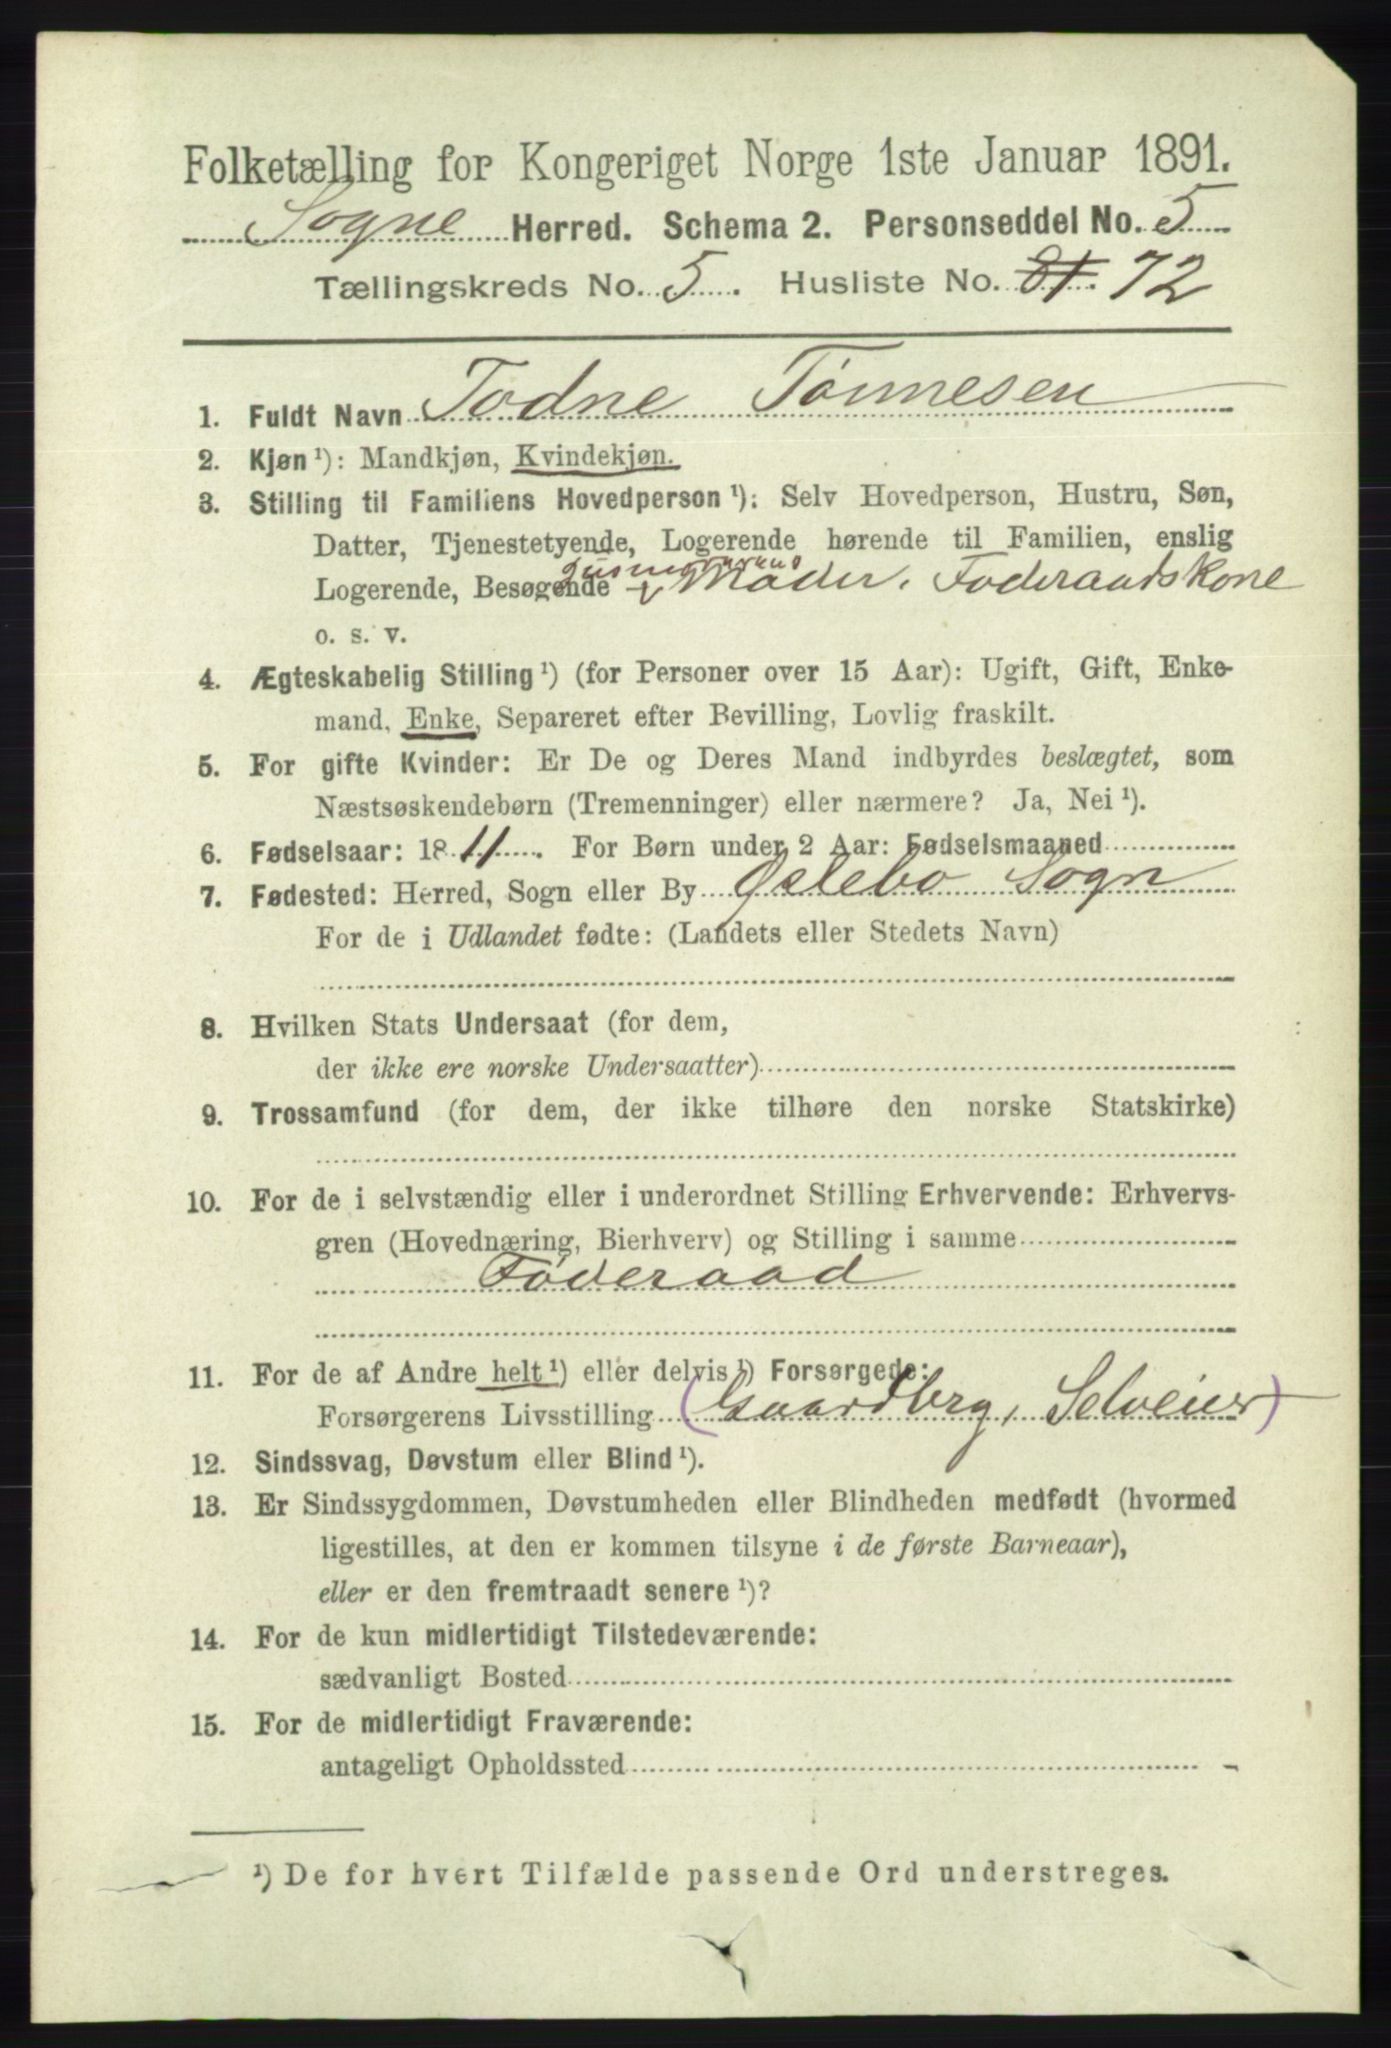 Folketælling for Kongeriget Norge 1ste Januar 1891.
Sogne Herred. Schema 2. Personseddel No. 5
Tællingskreds No. 5. Husliste No. 81. 72
1. Fuldt Navn Todne Tønnesen
2. Kjøn ¹): Mandkjøn, Kvindekjøn.
3. Stilling til Familiens Hovedperson ¹): Selv Hovedperson, Hustru, Søn,
Datter, Tjenestetyende, Logerende hørende til Familien, enslig
Logerende, Besøgende Moder, Foderaadskone
o. s. v.
4. Ægteskabelig Stilling ¹) (for Personer over 15 Aar): Ugift, Gift, Enke-
mand, Enke, Separeret efter Bevilling, Lovlig fraskilt.
5. For gifte Kvinder: Er De og Deres Mand indbyrdes beslægtet, som
Næstsøskendebørn (Tremenninger) eller nærmere? Ja, Nei ¹).
6. Fødselsaar: 1811. For Børn under 2 Aar: Fødselsmaaned
7. Fødested: Herred, Sogn eller By Øslebo Sogn
For de i Udlandet fødte: (Landets eller Stedets Navn)
8. Hvilken Stats Undersaat (for dem,
der ikke ere norske Undersaatter)
9. Trossamfund (for dem, der ikke tilhøre den norske Statskirke)
10. For de i selvstændig eller i underordnet Stilling Erhvervende: Erhvervs-
gren (Hovednæring, Bierhverv) og Stilling i samme
Føderaad
11. For de af Andre helt ¹) eller delvis ¹) Forsørgede:
Forsørgerens Livsstilling (Gaardbrg, Selveier)
12. Sindssvag, Døvstum eller Blind ¹).
13. Er Sindssygdommen, Døvstumheden eller Blindheden medfødt (hvormed
ligestilles, at den er kommen tilsyne i de første Barneaar),
eller er den fremtraadt senere ¹)?
14. For de kun midlertidigt Tilstedeværende:
sædvanligt Bosted
15. For de midlertidigt Fraværende:
antageligt Opholdssted
¹) De for hvert Tilfælde passende Ord understreges.